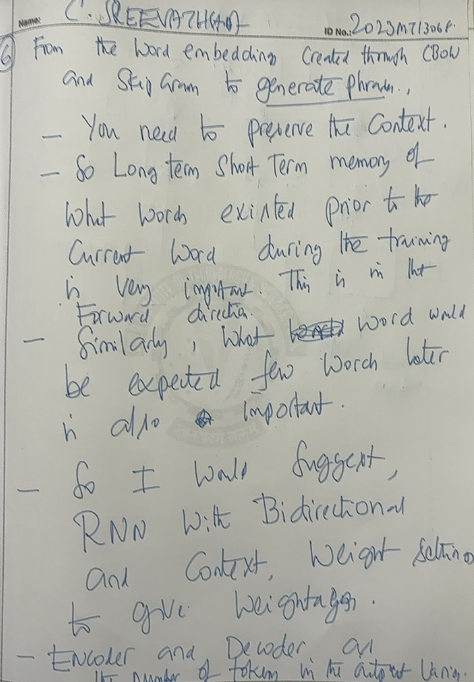 Name: C. SREEVATHSA
ID No.: 2023MT13068
6 From the word embedding Created through CBOW
and Skip Gram to generate Phrases,
- You need to preserve the Context.
- So Long term Short Term memory of
what words existed prior to the
Current word during the training
is very important. This is in the
Forward direction.
- Similarly, what word would
be expected few words later
is also important.
- So I would Suggest,
RNN with Bidirectional
and Context, Weight setting
to give weightages.
- Encoder and Decoder as
the number of tokens in the output